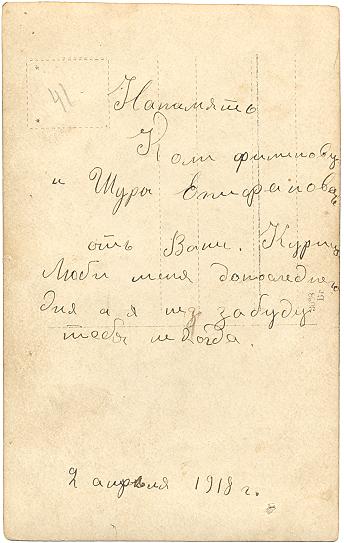 41
Напамять
Коли филипову
и Шуры Епифанова
отъ Вани. Куриц
Люби меня допоследне
дня а я не забуду
тебя некогда.
2 апреля 1918 г.